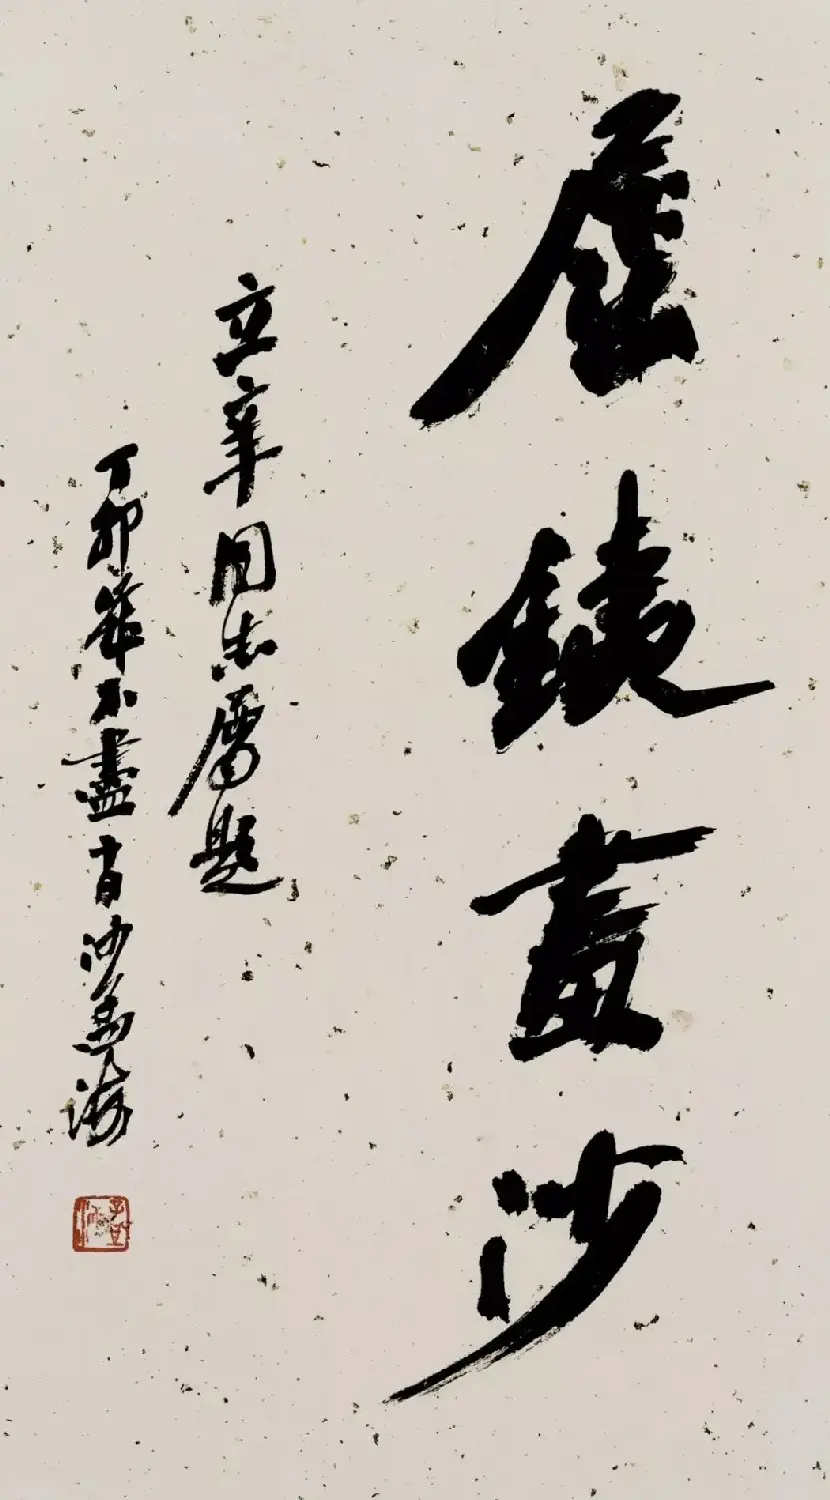 屈銕畫沙
立辛同志屬題
丁卯年不盡十日沙孟海